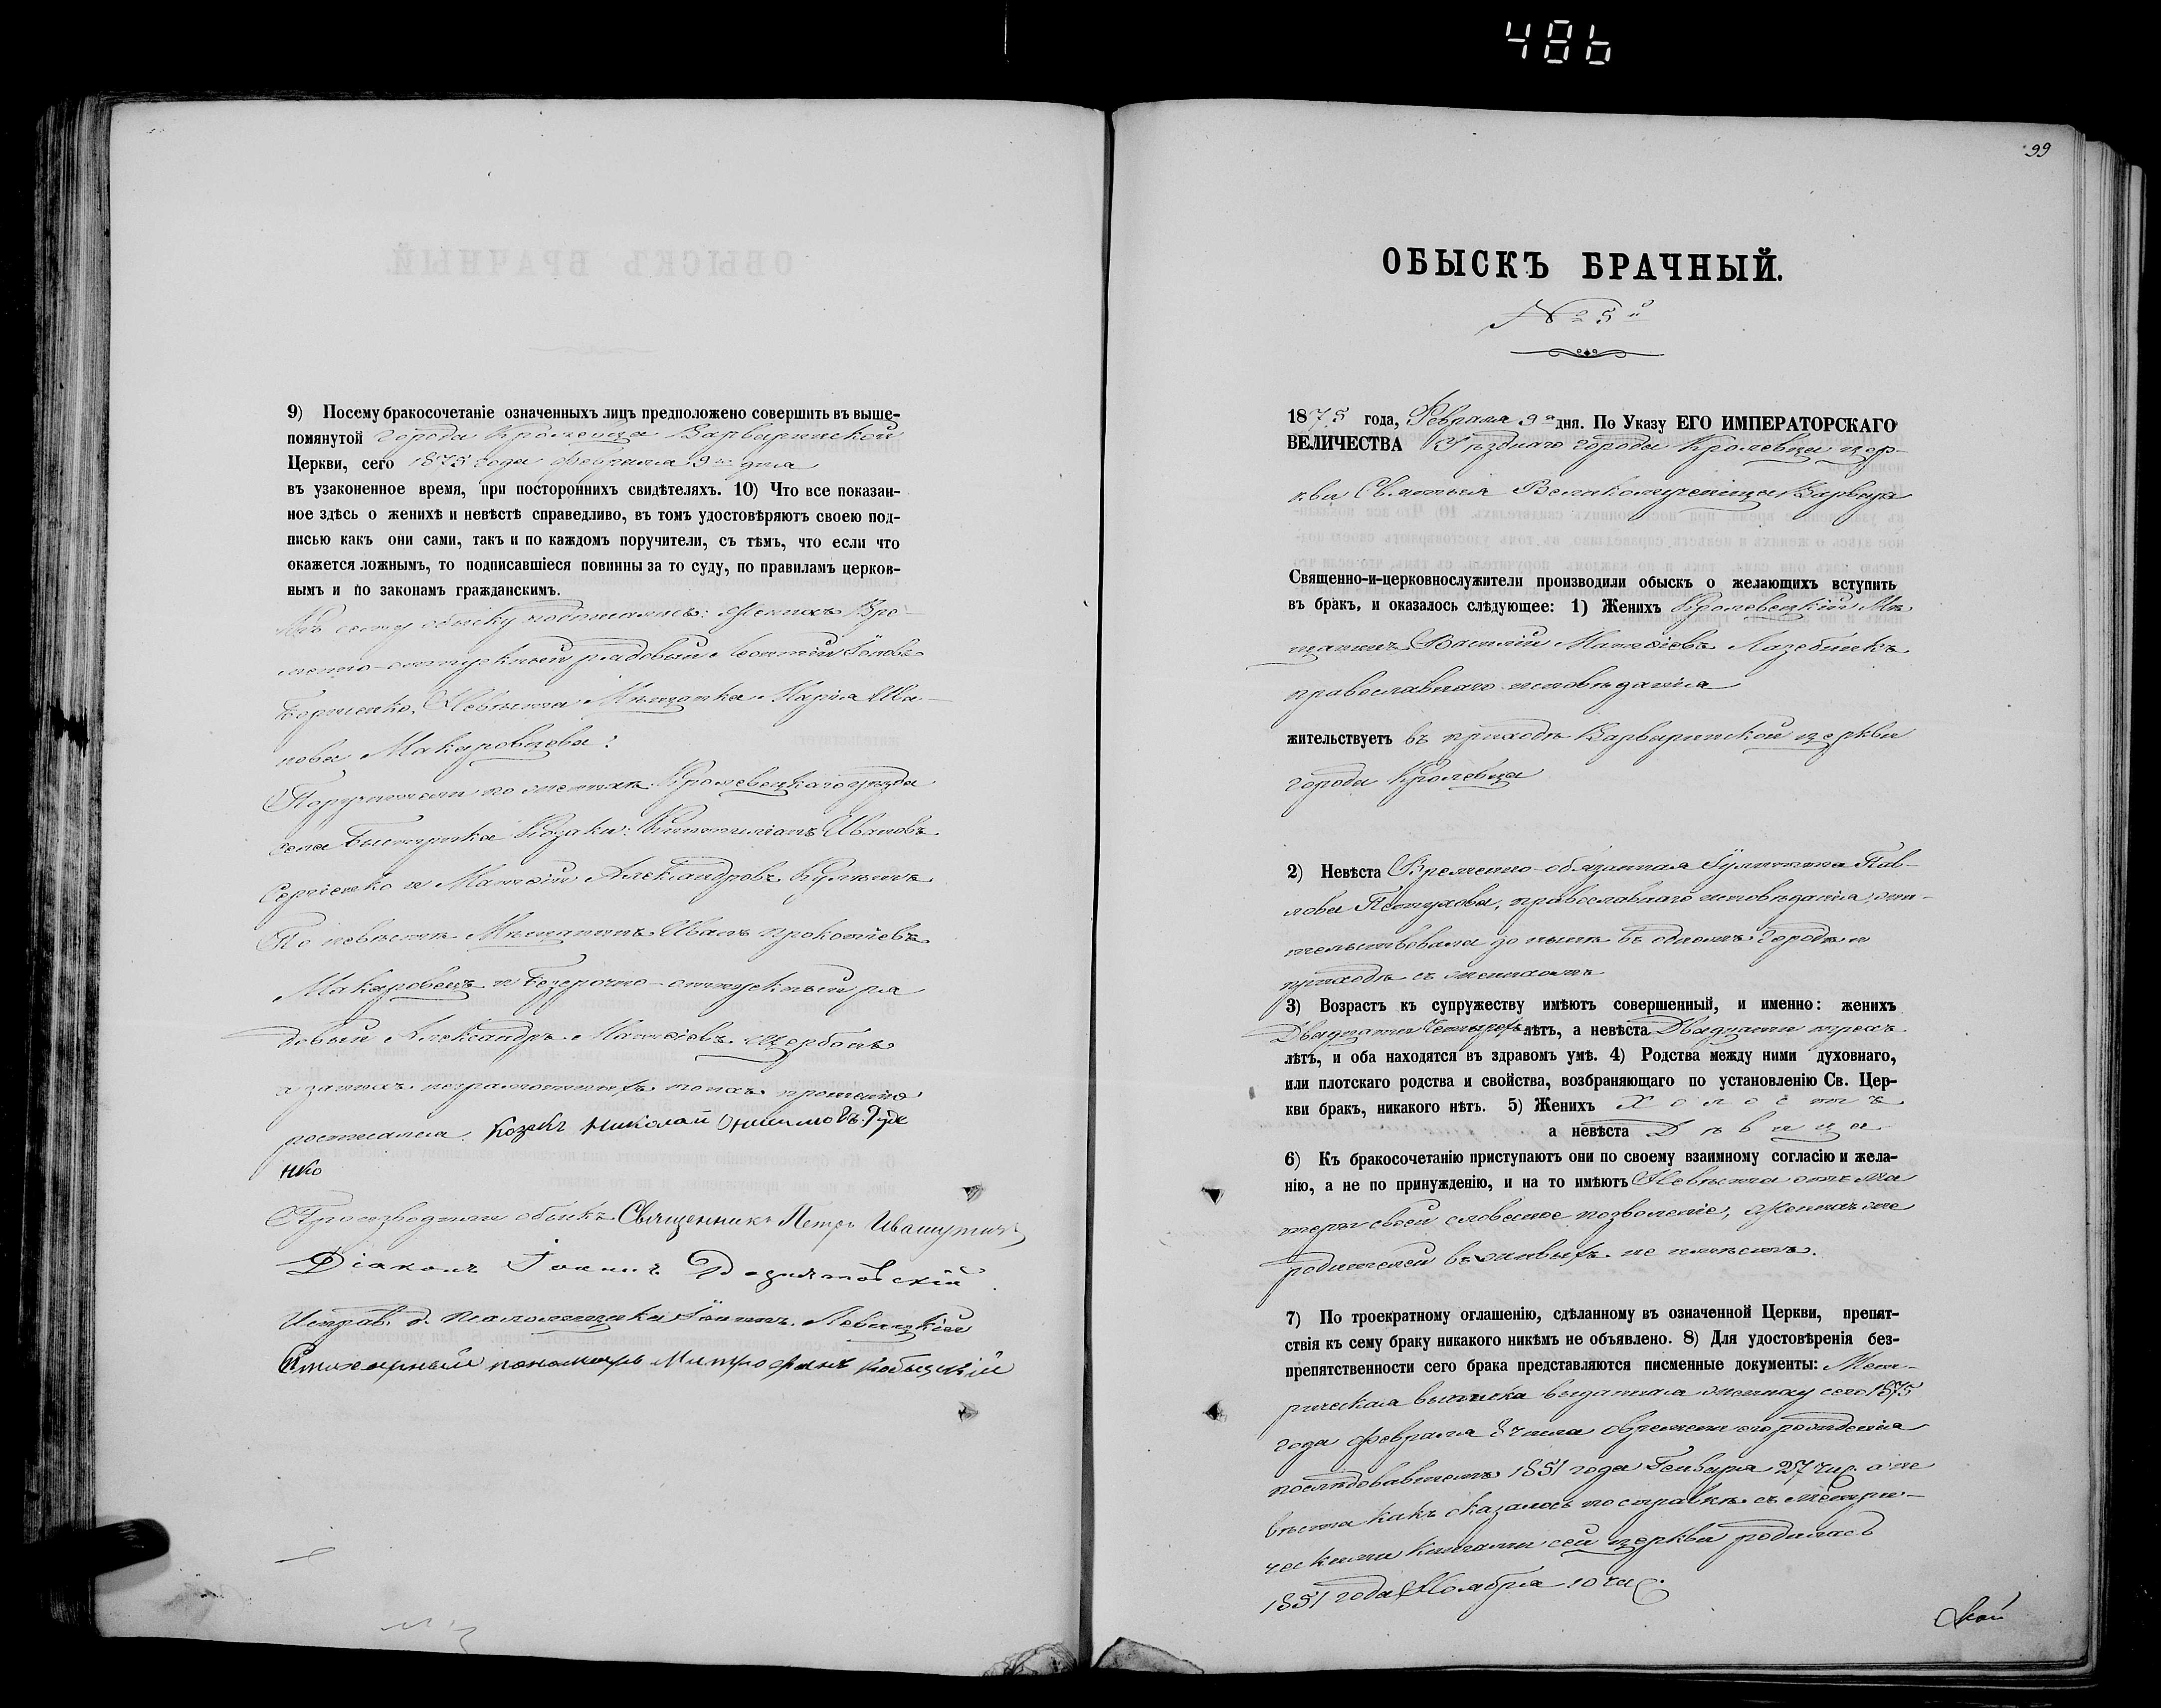 486
9) Посему бракосочетаніе означенныхъ лицъ предположено совершить въ выше-
помянутой города Кролевца Варваринской
Церкви, сего 1875 года февраля 9 дня
въ узаконенное время, при постороннихъ свидѣтеляхъ. 10) Что все показан-
ное здѣсь о женихѣ и невѣстѣ справедливо, въ томъ удостовѣряютъ своею под-
писью какъ они сами, такъ и по каждомъ поручители, съ тѣмъ, что если что
окажется ложнымъ, то подписавшіеся повинны за то суду, по правиламъ церков-
нымъ и по законамъ гражданскимъ.
Къ сему обыску подписались: Женихъ Вре-
менно-отпускный рядовый Леонтій
Борисенко, Невѣста Мѣщанка Марія Ива-
нова Макаровцова:
Поручители по женихѣ Кролевецкого уѣзда
села Быстрика Козаки: Ивановъ
Сергіенко и Матвій Александровъ
По невѣстѣ Мѣщанинъ Иванъ Прокопіевъ
Макаровецъ и Безсрочно-отпускный ря
довый Александръ Матвіевъ Щербакъ
а за нихъ неграмотныхъ по ихъ прошенію
росписался Козакъ Николай Онисимовъ Руде
нко
Производили обыскъ Священникъ Петръ Ивашутичъ
Діаконъ Іоаннъ
Исправ. д. псаломщика Іоаннъ Левицкій
Стихарный пономарь Митрофанъ
99
ОБЫСКЪ БРАЧНЫЙ.
№ 25й
1875 года, Февраля 9 дня. По Указу ЕГО ИМПЕРАТОРСКАГО
ВЕЛИЧЕСТВА Уѣзднаго города Кролевца цер-
кви Святыя Великомученицы Варвары
Священно-и-церковнослужители производили обыскъ о желающихъ вступить
въ бракъ, и оказалось слѣдующее: 1) Женихъ Кролевецкій Мѣ
щанинъ Василій Матвіевъ Лазебникъ
православнаго исповѣданія
жительствуетъ въ приходѣ Варваринской церкви
города Кролевца
2) Невѣста Временно-обязанная Гулиттта Пав-
лова Петухова, православнаго исповѣданія, жи-
тельствовала до нынѣ въ одномъ городѣ и
приходѣ съ женихомъ
3) Возрастъ къ супружеству имѣютъ совершенный, и именно: женихъ
Двадцати четырехъ лѣтъ, а невѣста Двадцати трехъ
лѣтъ, и оба находятся въ здравомъ умѣ. 4) Родства между ними духовнаго,
или плотскаго родства и свойства, возбраняющаго по установленію Св. Цер-
кви бракъ, никакого нѣтъ. 5) Женихъ Холостъ
а невѣста Дѣвица
6) Къ бракосочетанію приступаютъ они по своему взаимному согласію и жела-
нію, а не по принужденію, и на то имѣютъ Невѣста отъ ма
тери своей словесное позволеніе, Женихъ же
родителей въ живыхъ не имѣетъ.
7) По троекратному оглашенію, сдѣланному въ означенной Церкви, препят-
ствія къ сему браку никакого никѣмъ не объявлено. 8) Для удостовѣренія без-
препятственности сего брака представляются писменные документы: Мет-
рическая выписка выданная жениху сего 1875
года февраля 8 числа о времени его рожденія
послѣдовавшемъ 1851 года Генваря 27 чис. а не
вѣста какъ оказалось по справкѣ съ метри-
ческими книгами сей церкви родилась
1851 года Ноября 10 чис.